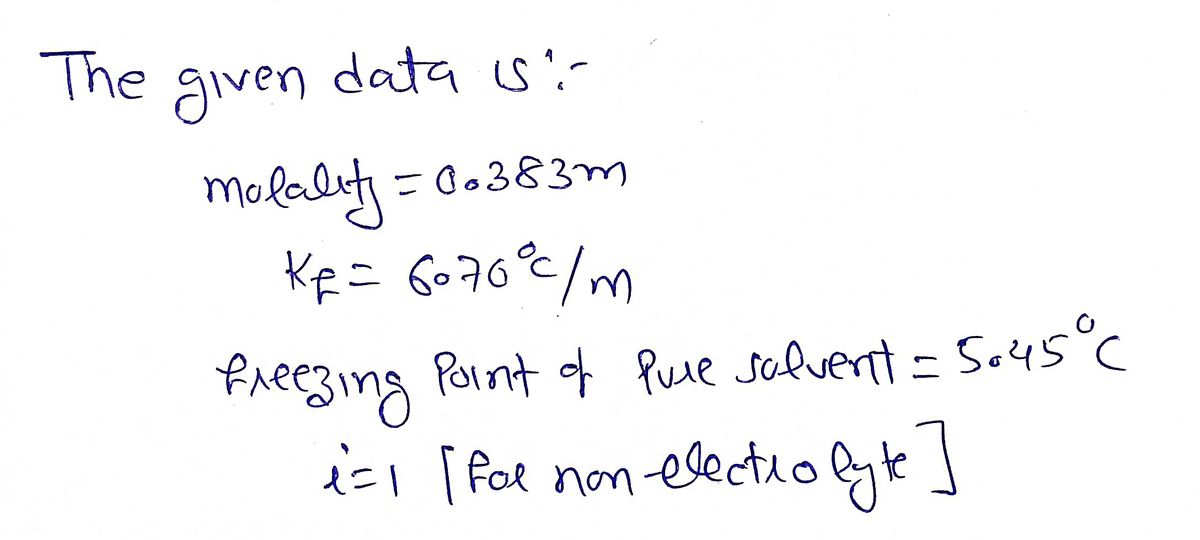 The given data is :-
molality = 0.383m
Kf = 6.70°C/m
freezing Point of Pure solvent = 5.45°C
i=1 [for non-electrolyte]